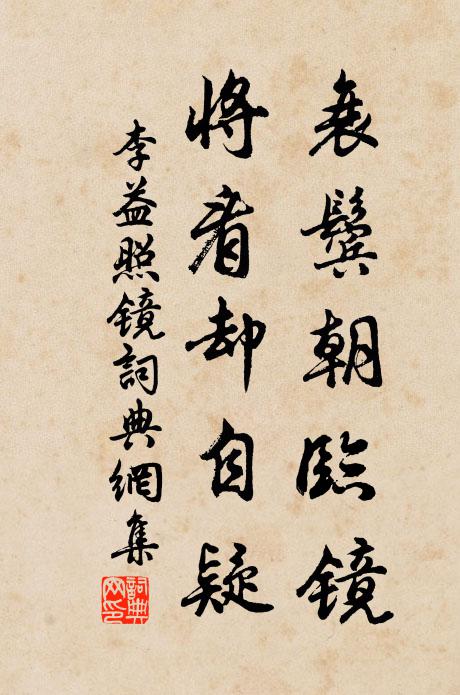 衰鬓朝临镜
将看却自疑
李益照镜詞典網集
詞典网印